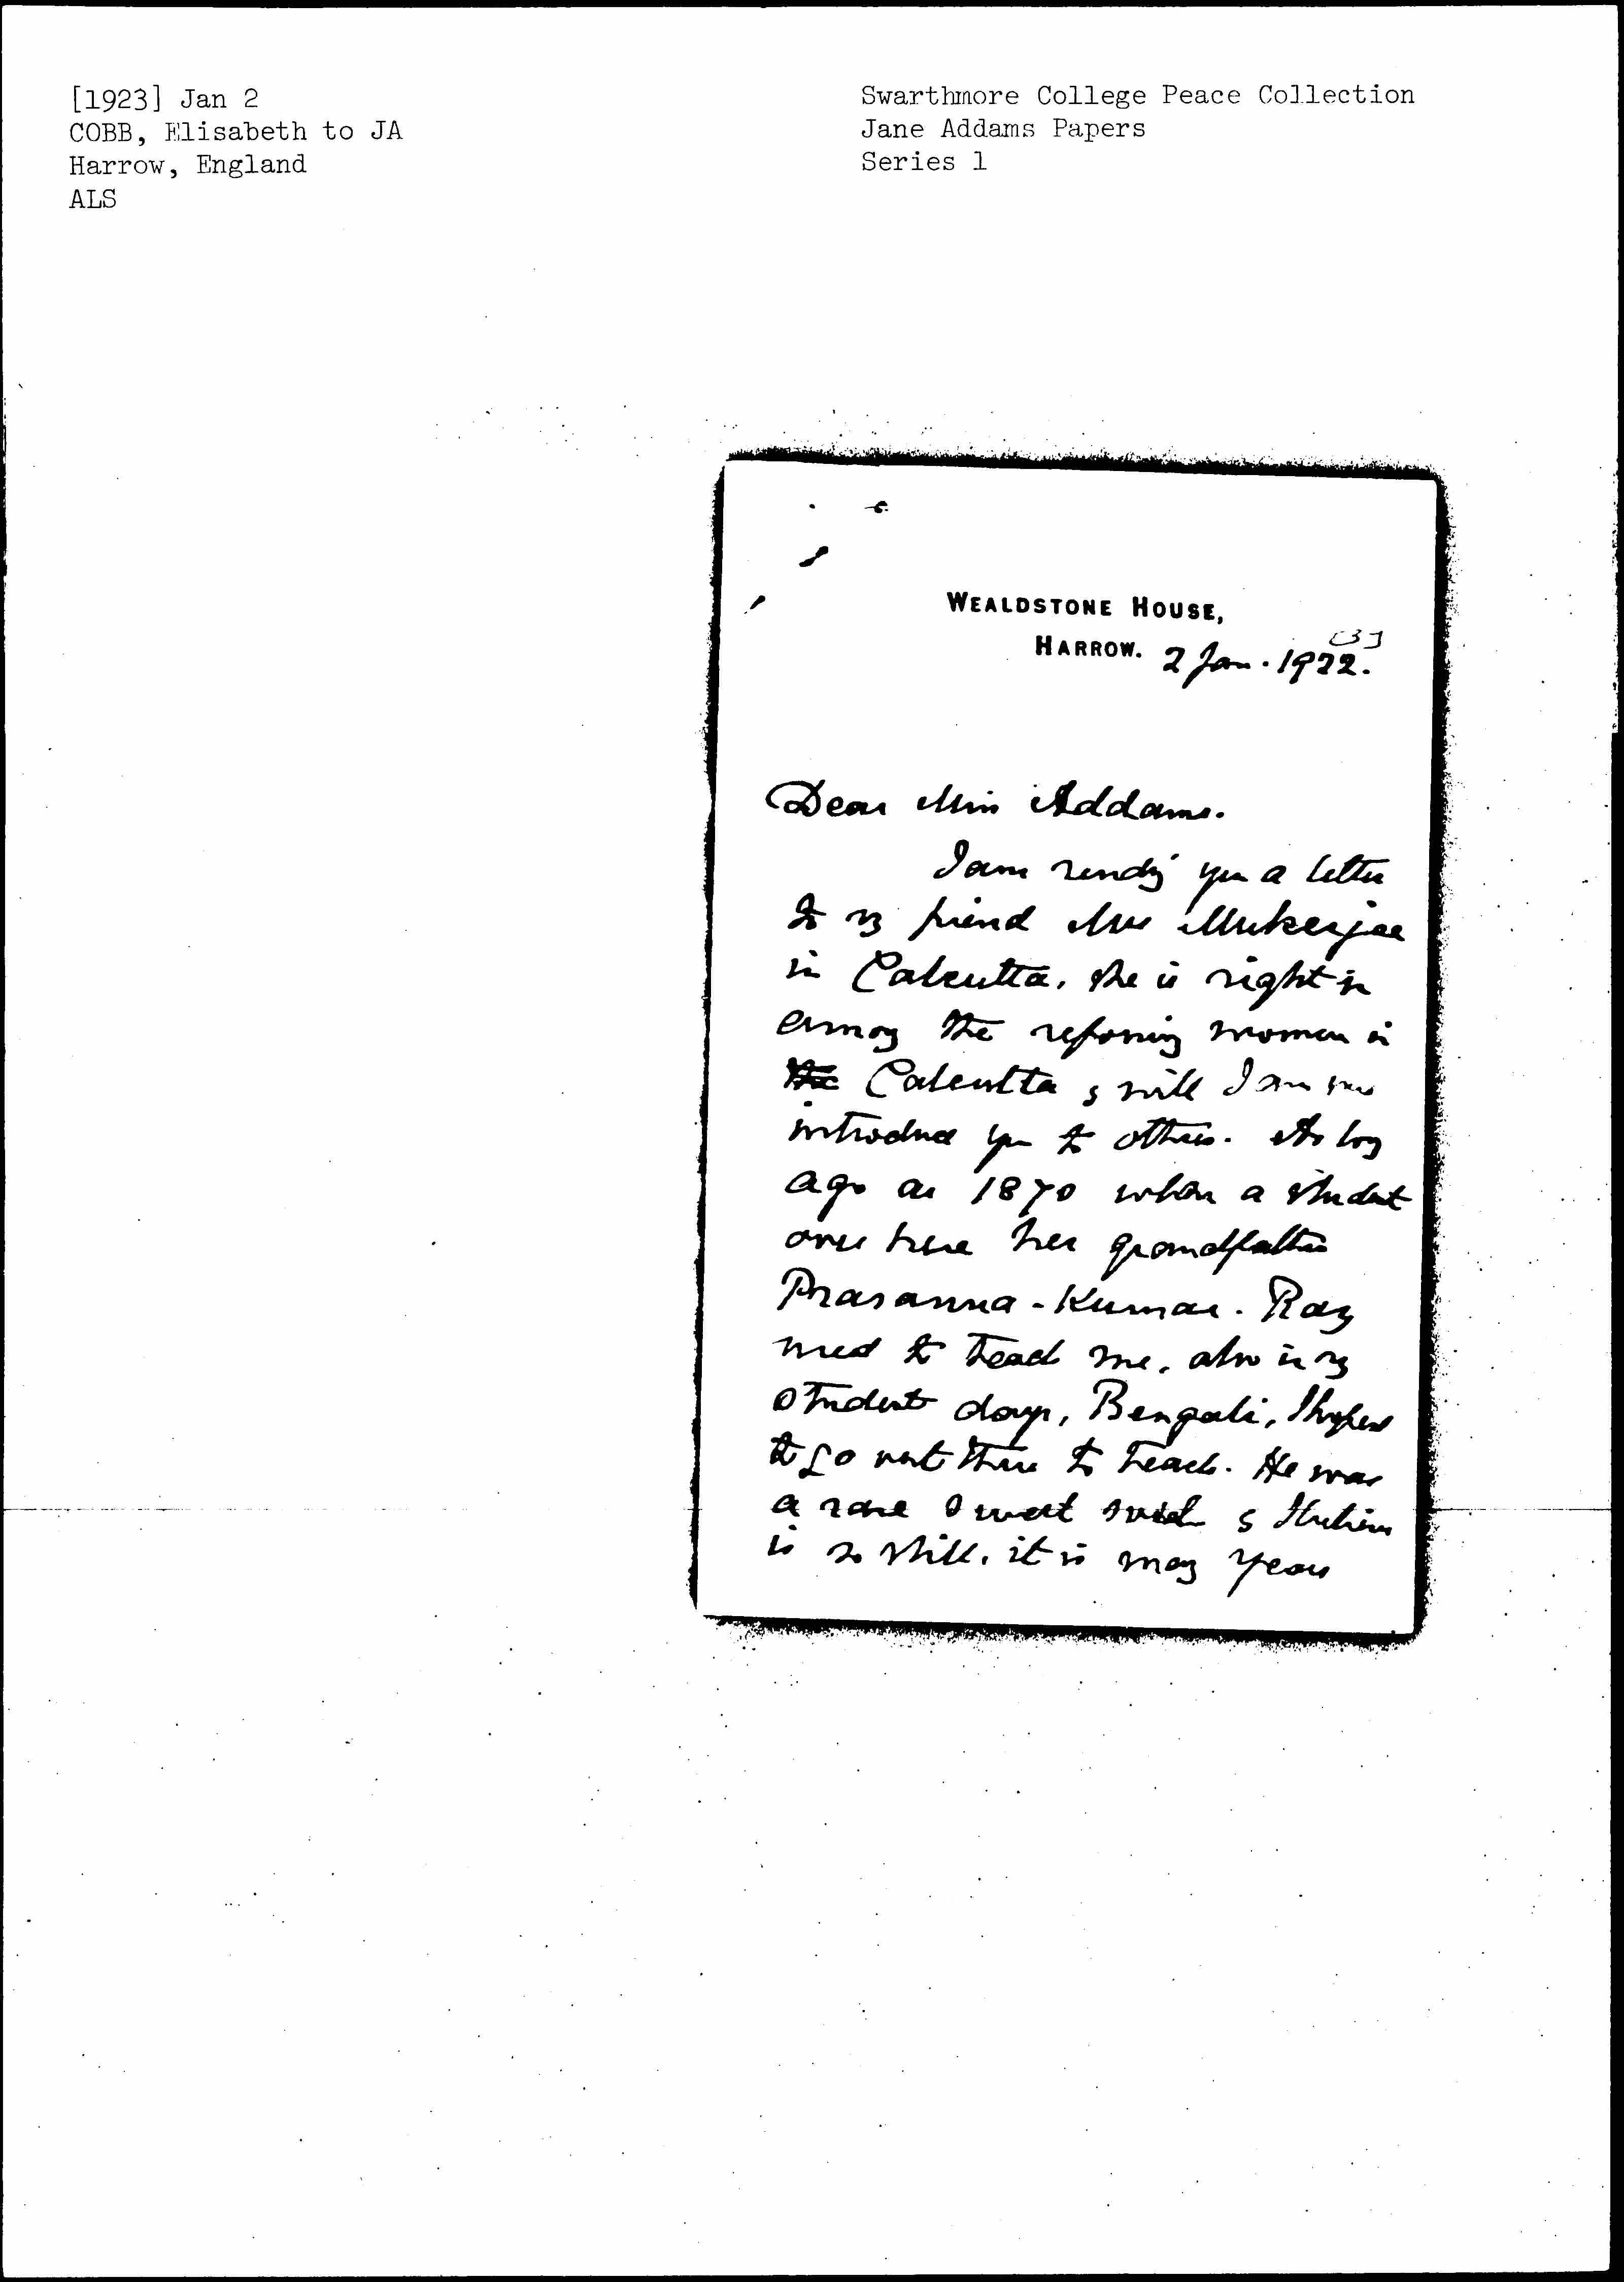 [1923] Jan 2
COBB, Elisabeth to JA
Harrow, England
ALS
Swarthmore College Peace Collection
Jane Addams Papers
Series 1
WEALDSTONE HOUSE,
HARROW. 2 Jan. 1922.
[3]
Dear Miss Addams.
I am sending you a letter
to my friend Mrs Mukerjee
in Calcutta. She is right in
among the reforming women in
the Calcutta & will I am sure
introduce you to others. As long
ago as 1870 when a student
over here her grandfather
Prasanna-Kumar. Ray
used to teach me, also in my
student days, Bengali, I hoped
to go out there to teach. He was
a rare sweet soul &
is so still. it is many years